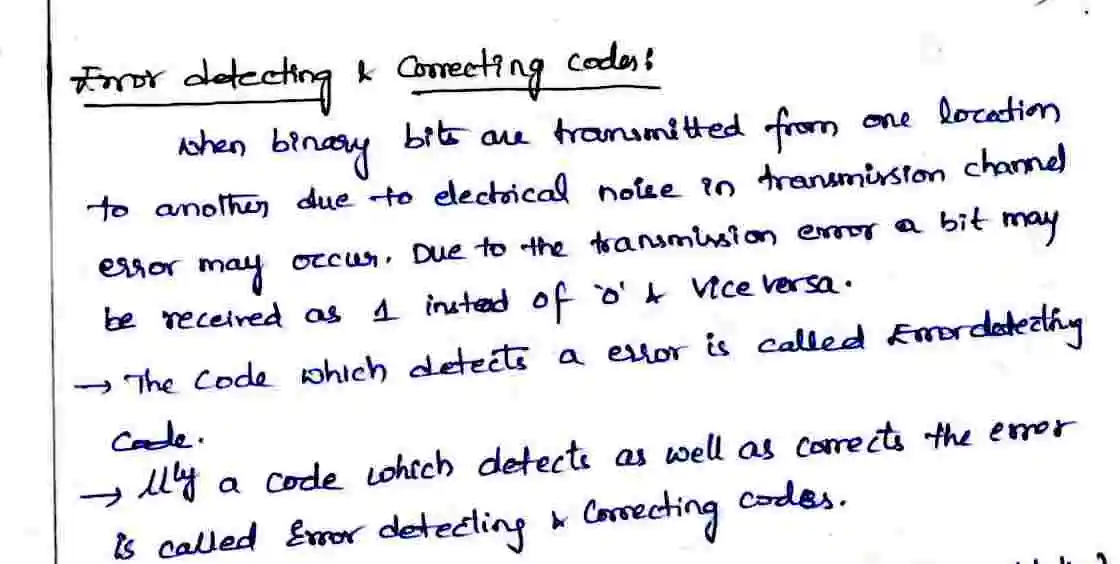 Error detecting & Correcting codes:
when binary bits are transmitted from one location
to another due to electrical noise in transmission channel
error may occur. Due to the transmission error a bit may
be received as 1 insted of '0' & vice versa.
→ The code which detects a error is called Error detecting
code.
→ llly a code which detects as well as corrects the error
is called Error detecting & Correcting codes.